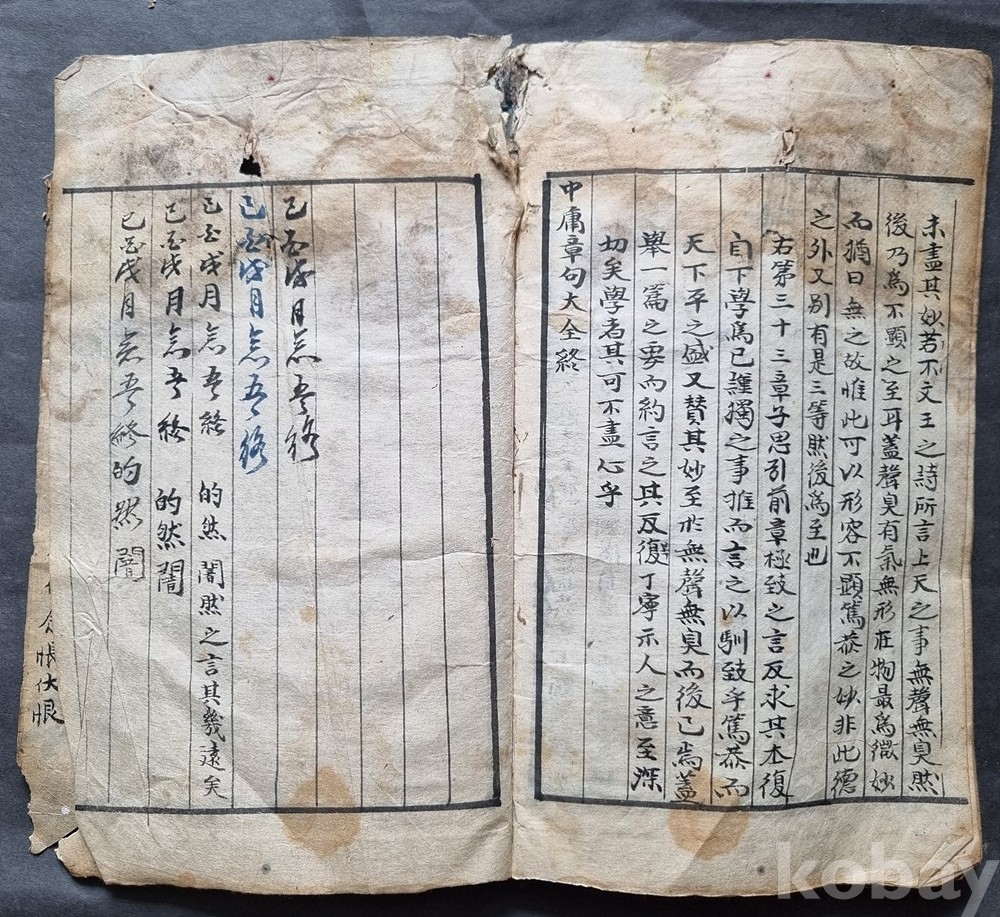 未盡其妙若不文王之詩所言上天之事無聲無臭然
後乃爲不顯之至耳蓋聲臭有氣無形在物最爲微妙
而猶曰無之故惟此可以形容不顯篤恭之妙非此德
之外又別有是三等然後爲至也
右第三十三章子思引前章極致之言反求其本復
自下學爲已謹獨之事推而言之以馴致乎篤恭而
天下平之盛又贊其妙至於無聲無臭而後已焉蓋
擧一篇之要而約言之其反復丁寧示人之意至深
切矣學者其可不盡心乎
中庸章句大全終
己 戌月 吾終
己 戌月 吾終
己 戌月 吾終 的然 闇然之言其幾遠矣
己 戌月 吾終 的然 闇
己 戌月 吾終 的然 闇
恨伏恨
kobay